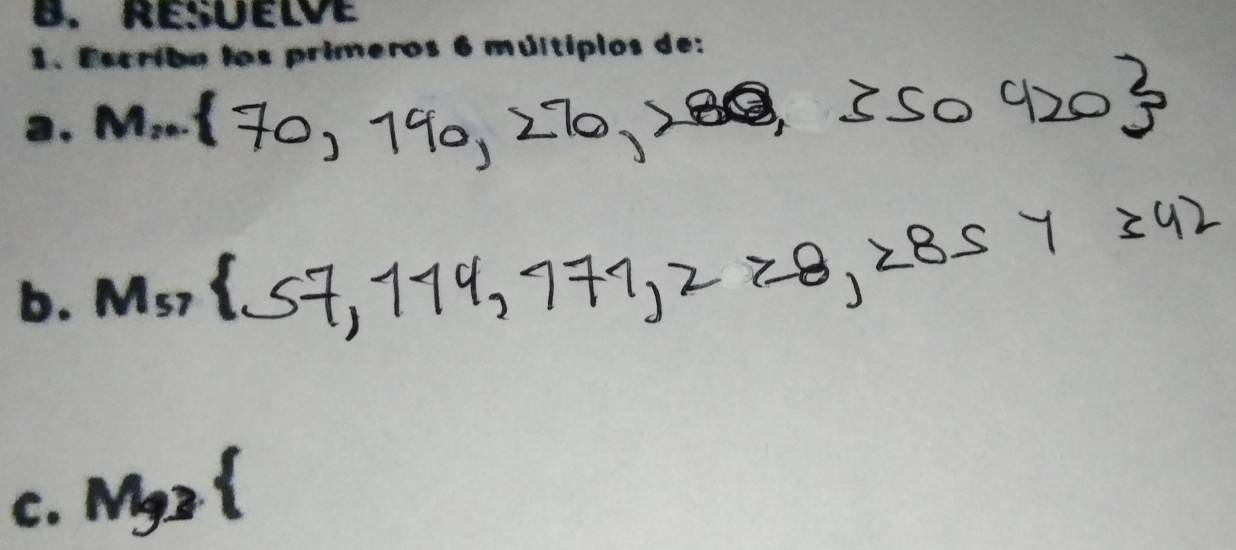 B. RESUELVE
1. Escribe los primeros 6 múltiplos de:
a. M₇₀ { 70, 140, 210, 280, 350 420}
b. M57 {57, 114, 171, 228, 285 Y 342
c. M93 {